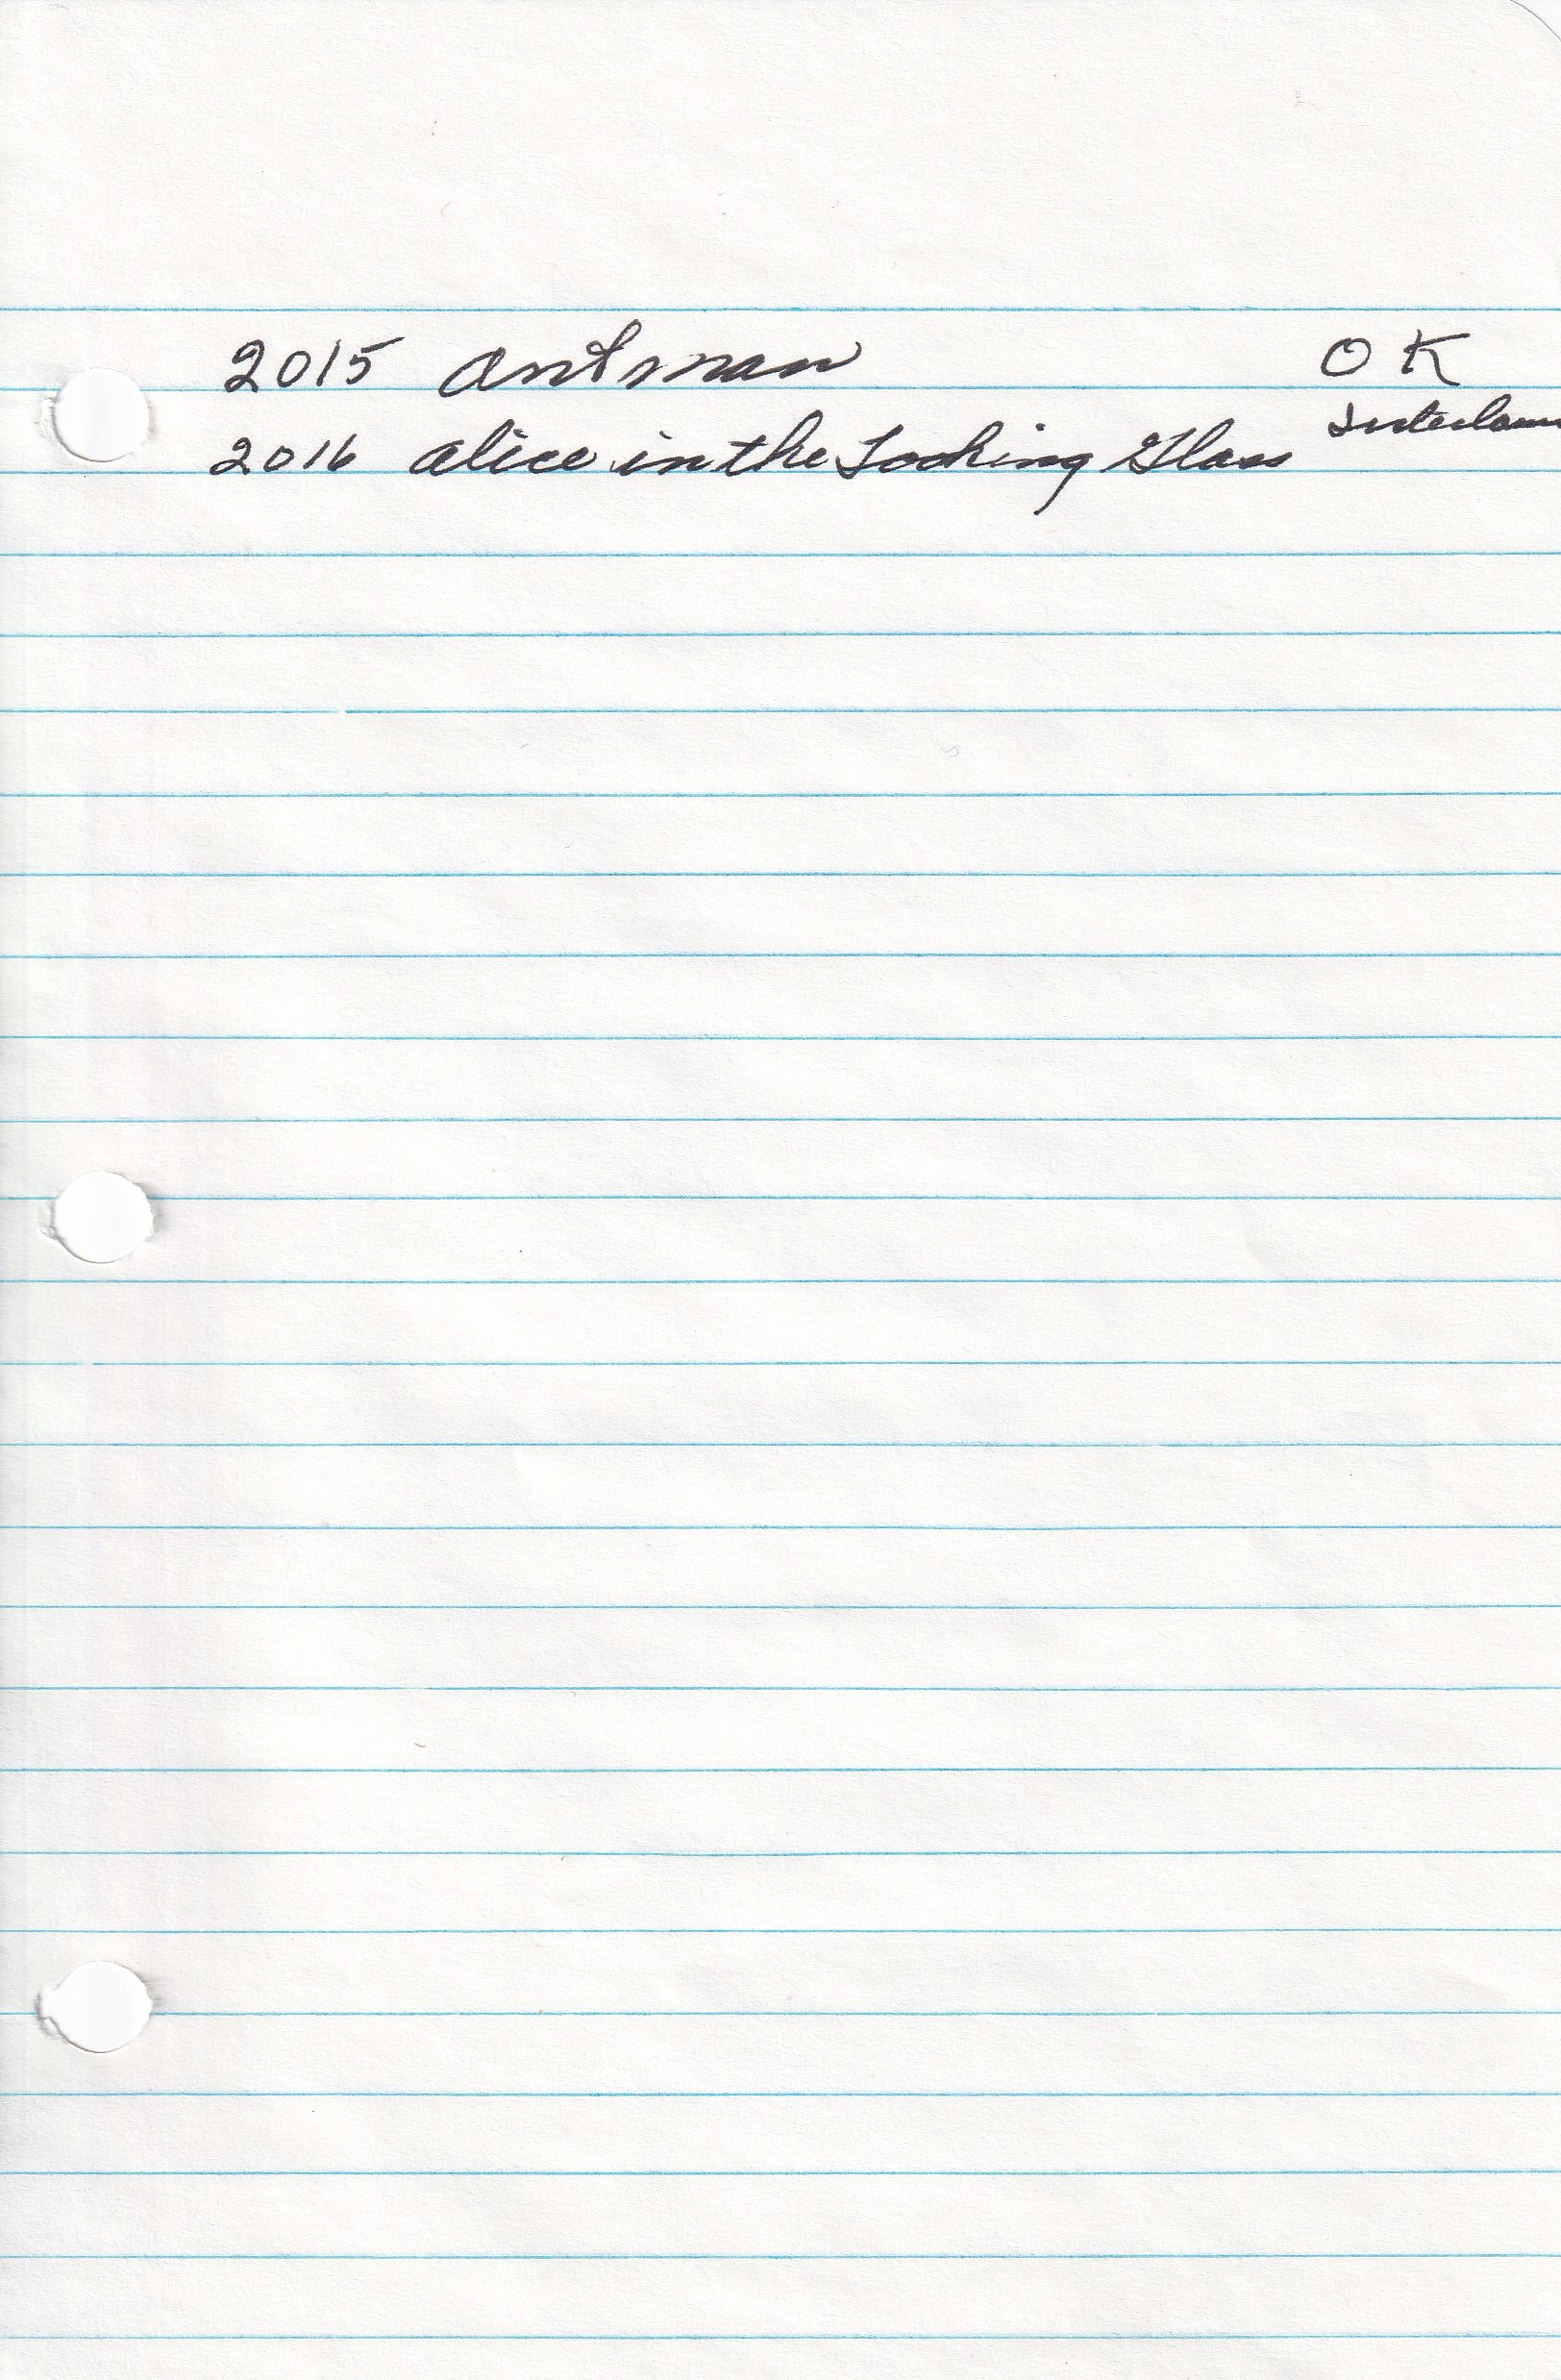 2015 antman OK
2016 alice in the Looking Glass